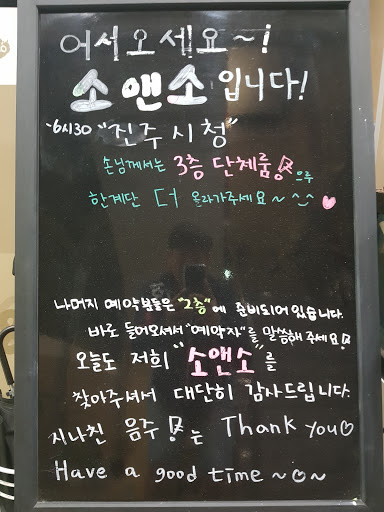 어서오세요~!
소앤소입니다!
-6시30 "진주시청"
손님께서는 3층 단체룸!으루
한계단 더 올라가주세요~^^♥
나머지 예약분들은 "2층"에 준비되어 있습니다.
바로 들어오셔서 "예약자"를 말씀해 주세요!
오늘도 저희 "소앤소"를
찾아주셔서 대단히 감사드립니다.
지나친 음주!는 Thank you♡
Have a good time ~♡~